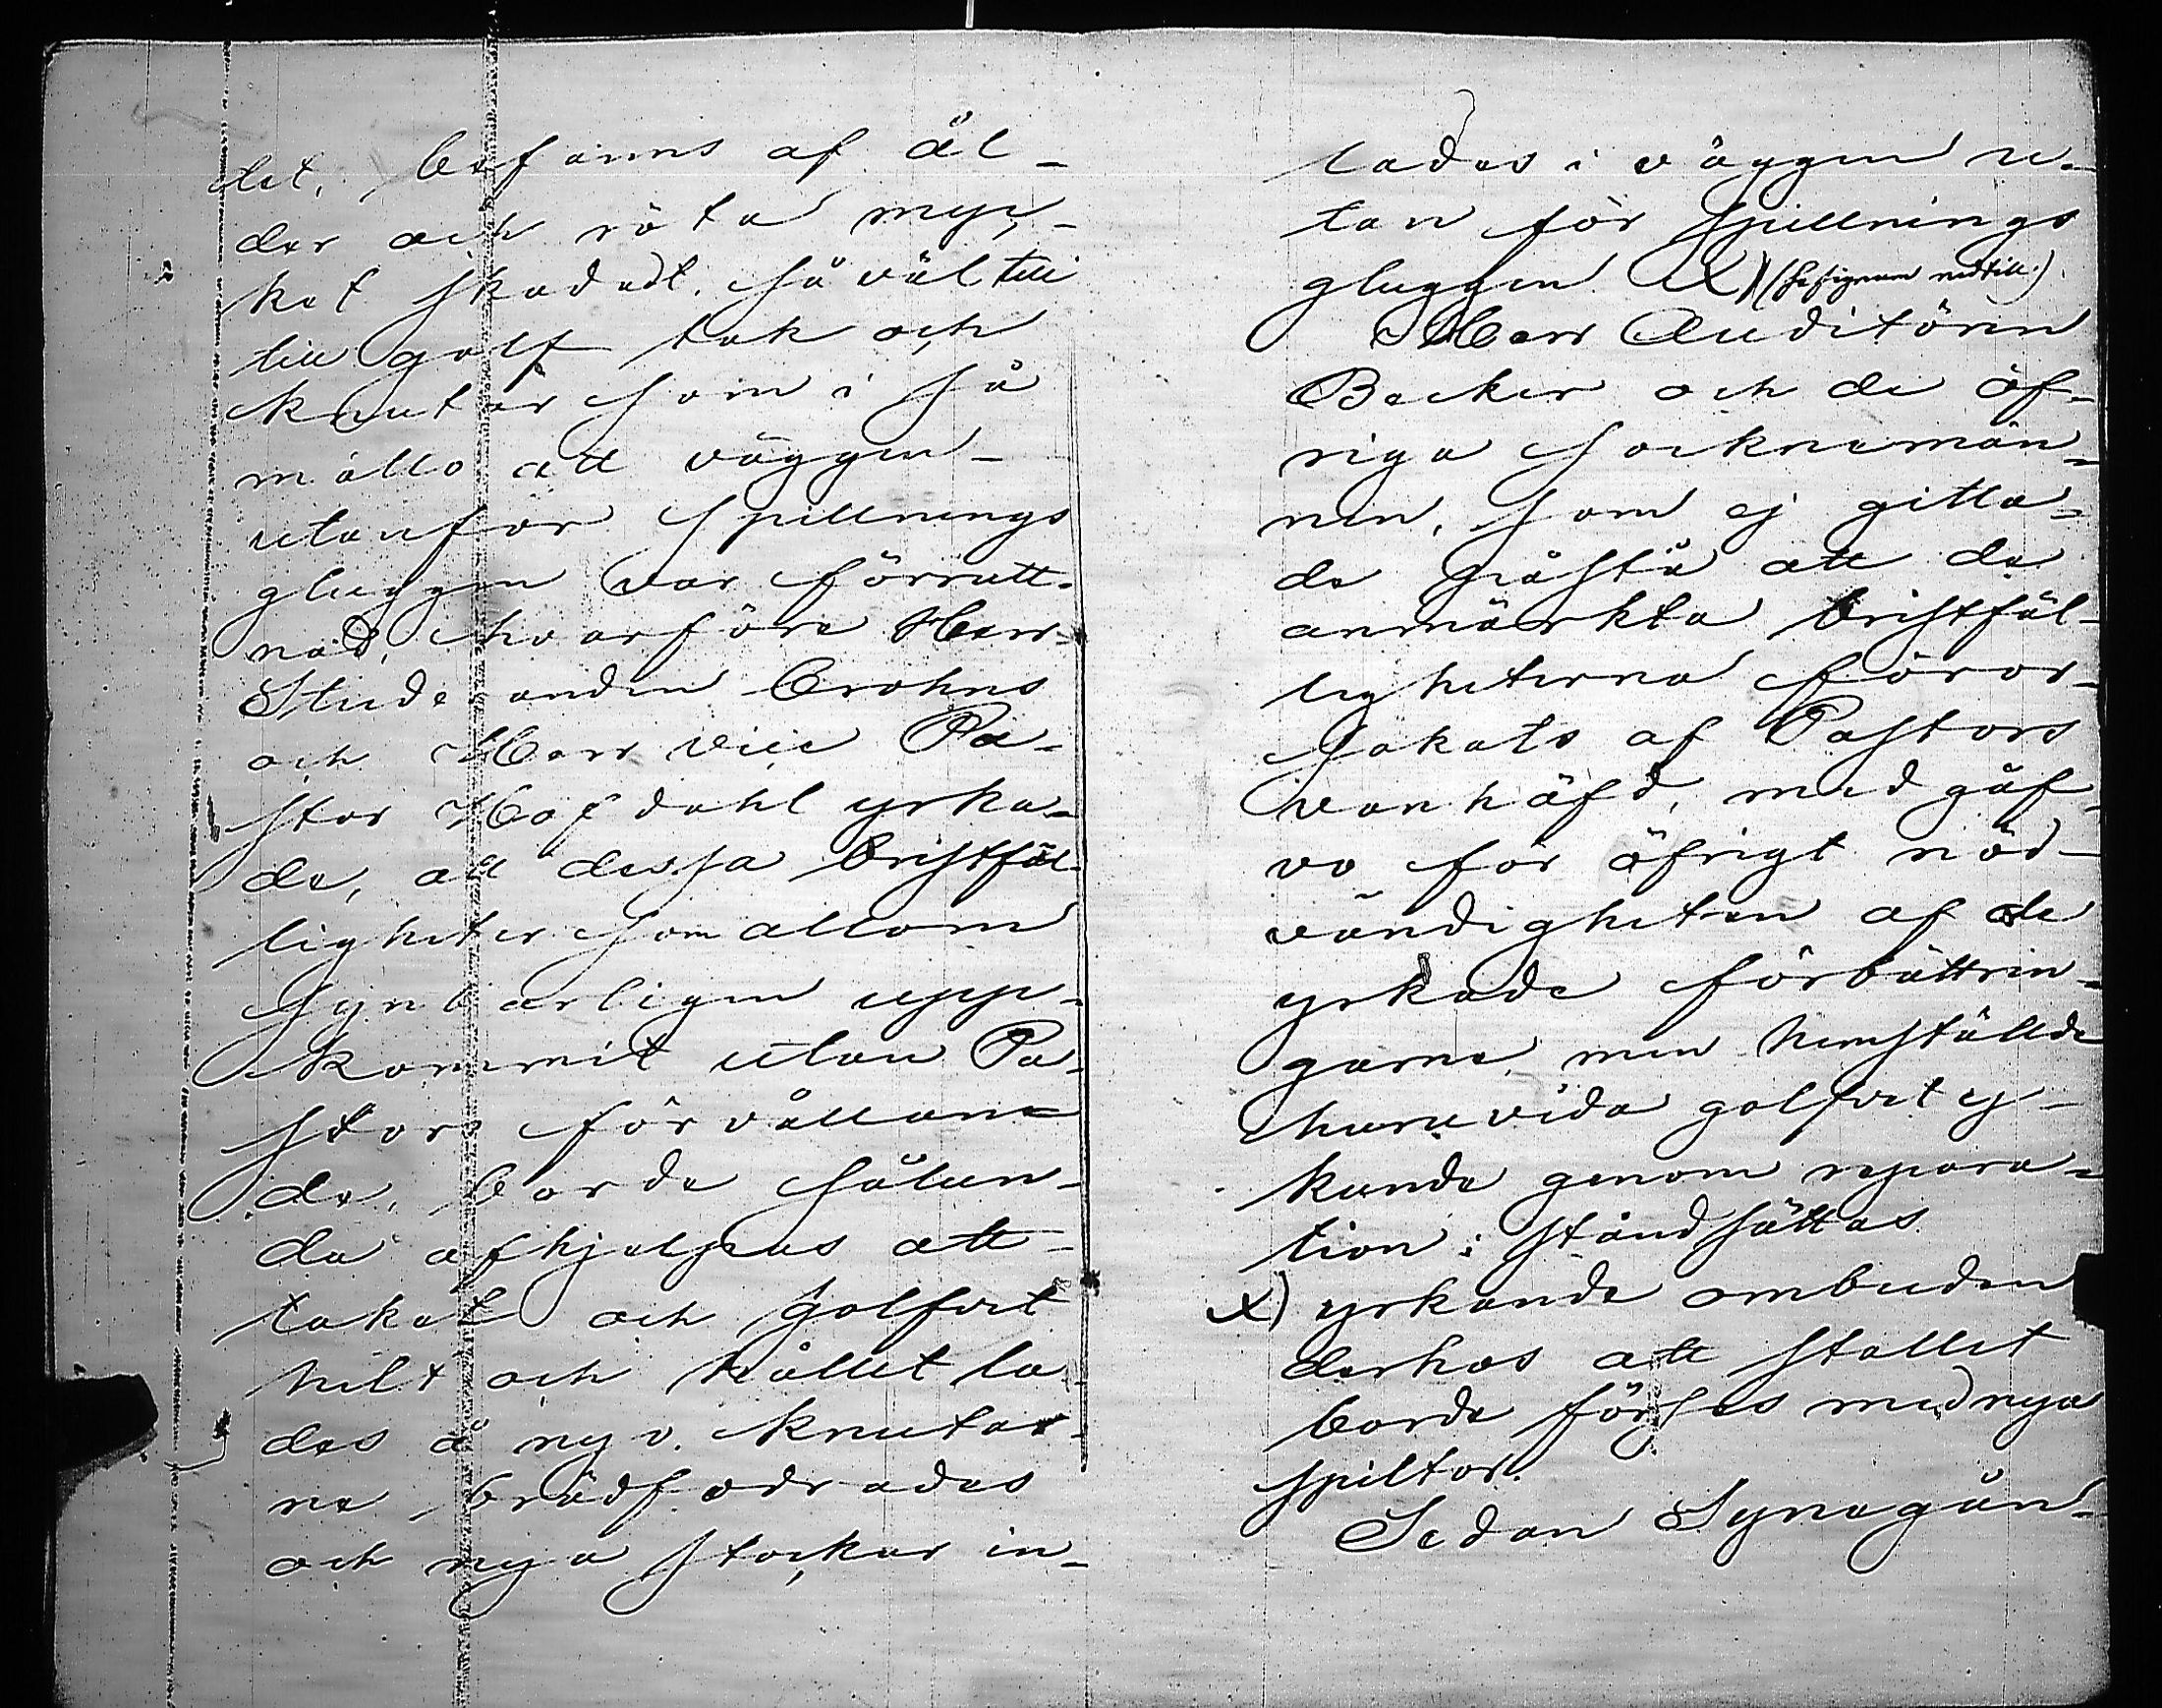 det, befanns af ål-
der och röta myc-
ket skadadt. så väl till
till golf tak och
knutar som i så
måtto att väggen
utanför spillnings
gluggen var förrutt-
nad, hvarföre Herr
Studeranden Crohns
och Herr vice Pa-
stor Hofdahl yrka-
de, att dessa bristfäl-
ligheter som allom
synbarligen upp-
kommit utan Pa-
stors förvållan-
de, borde sålun-
da afhjelpas att
taket och golfvet
helt och hållet la-
des å nyo. knutar-
ne brädfodrades
och nya stockar in-
lades i väggen u-
tan för spillnings
gluggen X) ( nedtill.)
Herr Auditören
Becker och de öf-
riga socknemän-
nen, som ej gitta-
de påstå att de
anmärkta bristfäl-
ligheterna föror-
sakats af Pastors
vanhäfd, medgåf-
vo för öfrigt nöd-
vändigheten af de
yrkade förbättrin-
garne, men hemstälde
huruvida golfvet ej
kunde genom repara-
tion i stånd sättas
X) yrkande ombuden
derhos att stallet
borde förses med nya
spiltor.
Sedan Synegån-